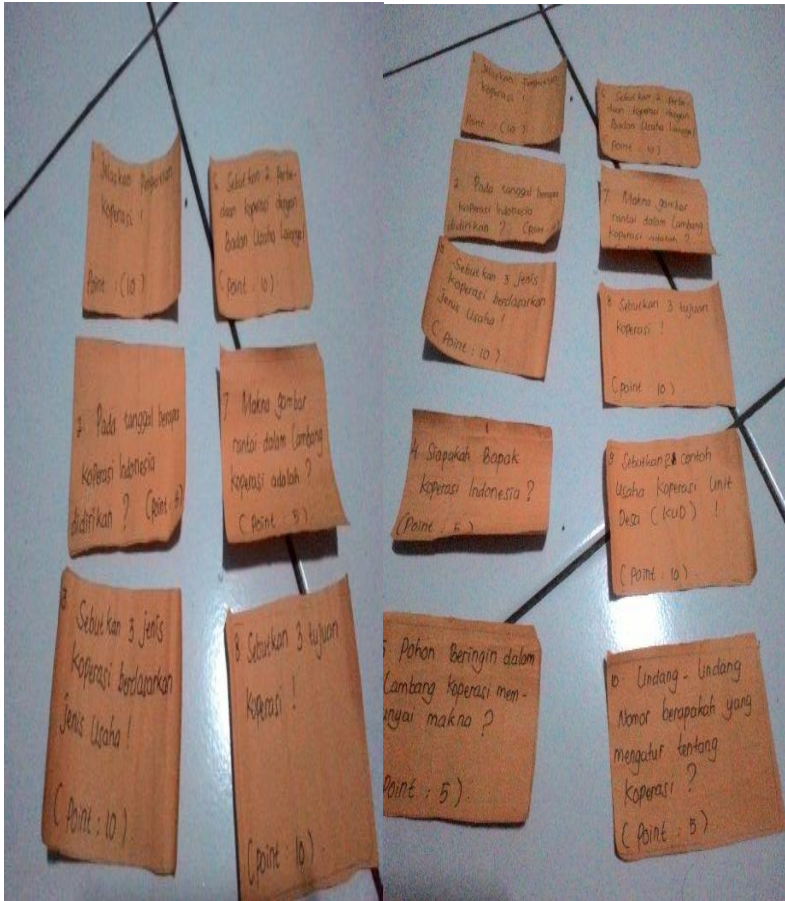 1 Jelaskan Pengertian
koperasi !
Point : (10)
6 Sebutkan 2 Perbe-
daan koperasi dengan
Badan Usaha Lainnya
(Point : 10)
2. Pada tanggal berapa
koperasi Indonesia
didirikan ? (Point : 5)
7 Makna gambar
rantai dalam Lambang
koperasi adalah ?
(Point : 5)
3 Sebutkan 3 jenis
koperasi berdasarkan
Jenis Usaha !
(Point : 10).
8 Sebutkan 3 tujuan
Koperasi !
(point : 10).
Jelaskan Pengertian
koperasi !
Point : (10)
6 Sebutkan 2 Perbe-
daan koperasi dengan
Badan Usaha Lainnya
(Point : 10)
2 Pada tanggal berapa
koperasi Indonesia
didirikan ? (Point
7 Makna gambar
rantai dalam Lambang
koperasi adalah ?
Sebutkan 3 jenis
koperasi berdasarkan
Jenis Usaha !
(Point : 10).
8 Sebutkan 3 tujuan
koperasi !
(point : 10)
4 Siapakah Bapak
koperasi Indonesia ?
(Point : 5)
9 Sebutkan 2 contoh
Usaha Koperasi Unit
Desa (KUD) !
(Point : 10)
5 Pohon Beringin dalam
Lambang koperasi mem-
unyai makna ?
Point : 5)
10 Undang - Undang
Nomor berapakah yang
mengatur tentang
Koperasi ?
(Point : 5)